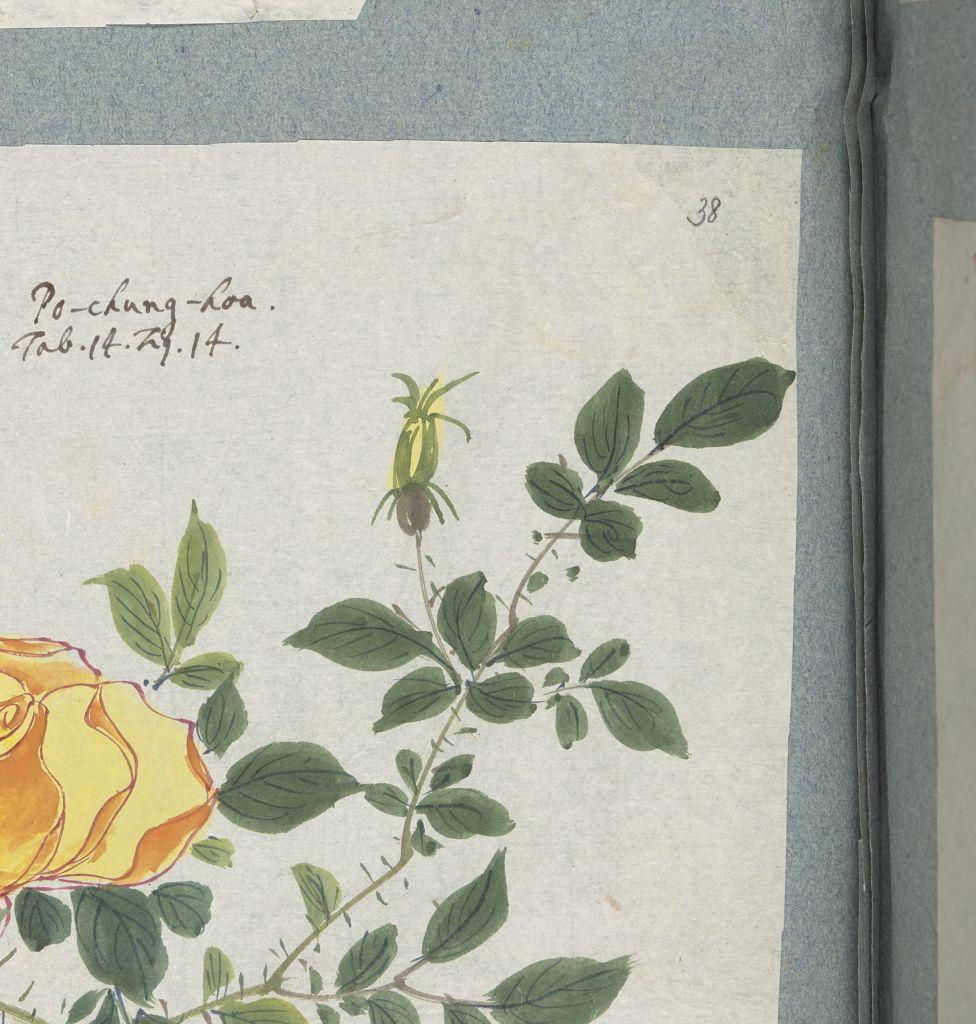 38
Po-chung-hoa.
Tab. 14. Fig. 14.